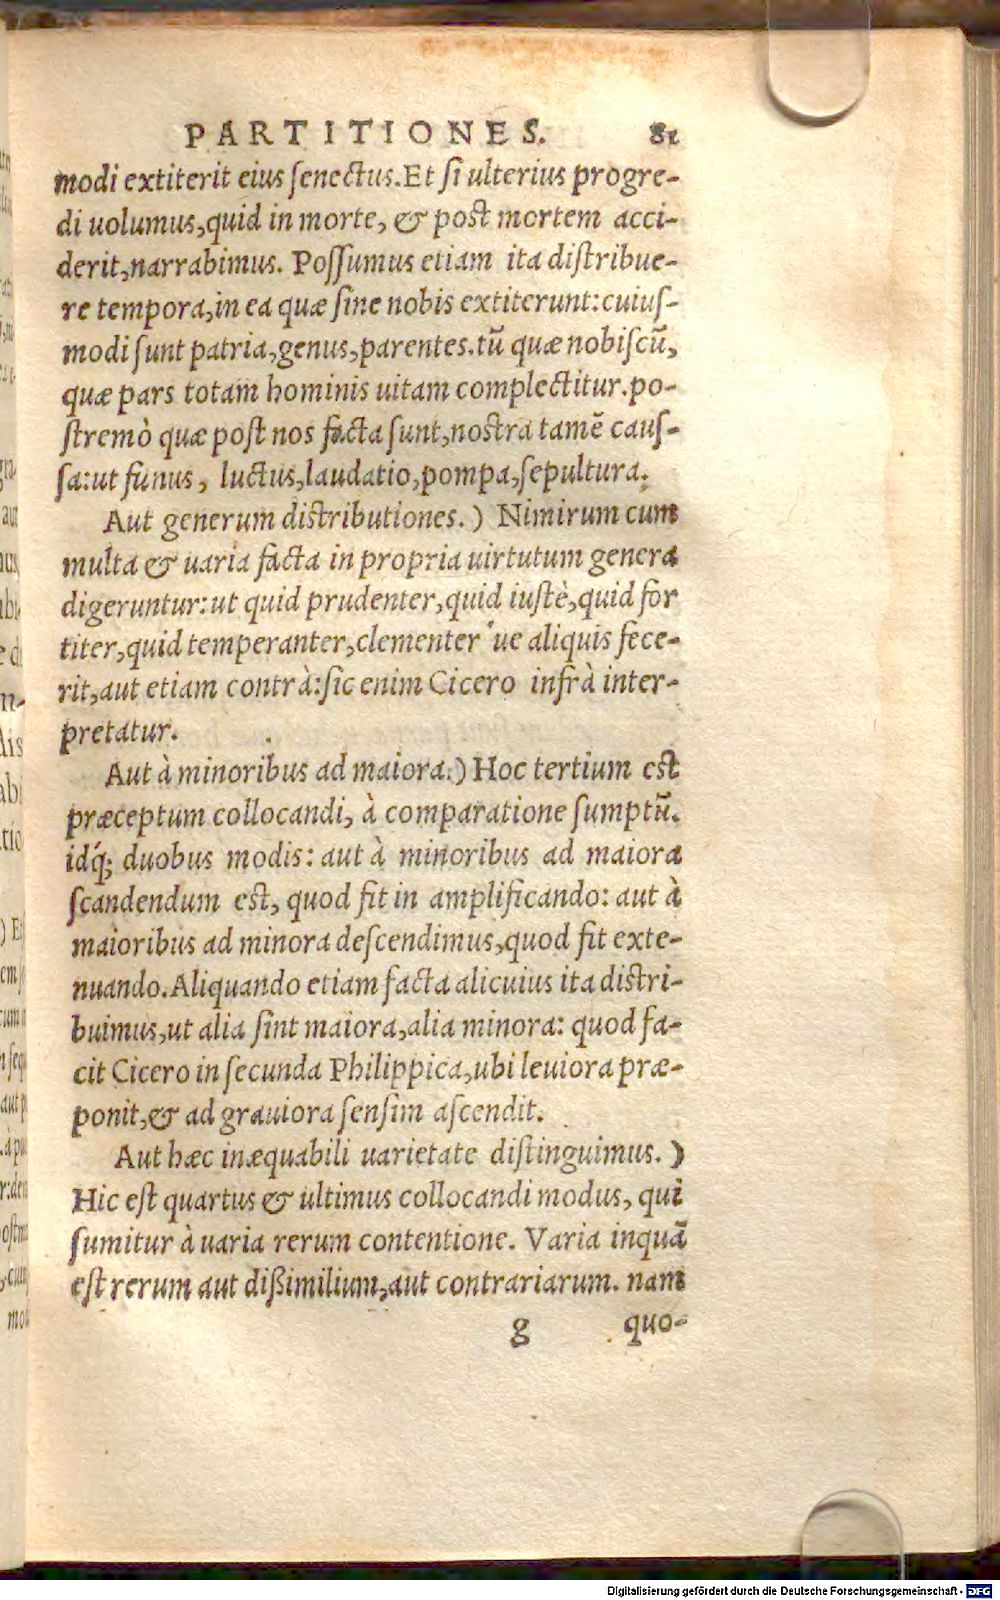 PARTITIONES. 81
modi extiterit eius ſenectus. Et ſi ulterius progre-
di uolumus, quid in morte, & post mortem acci-
derit, narrabimus. Poſſumus etiam ita diſtribue-
re tempora, in ea quæ ſine nobis extiterunt: cuiuſ-
modi ſunt patria, genus, parentes. tū quæ nobiſcū,
quæ pars totam hominis uitam complectitur. po-
ſtremò quæ poſt nos facta ſunt, noſtra tamē cauſ-
ſa: ut funus, luctus, laudatio, pompa, ſepultura.
Aut generum diſtributiones.) Nimirum cum
multa & uaria facta in propria uirtutum genera
digeruntur: ut quid prudenter, quid iuſtè, quid for
titer, quid temperanter, clementer ue aliquis fece-
rit, aut etiam contrà: ſic enim Cicero infrà inter-
pretatur.
Aut à minoribus ad maiora.) Hoc tertium eſt
præceptum collocandi, à comparatione ſumptū.
idq́; duobus modis: aut à minoribus ad maiora
ſcandendum eſt, quod fit in amplificando: aut à
maioribus ad minora deſcendimus, quod fit exte-
nuando. Aliquando etiam facta alicuius ita diſtri-
buimus, ut alia ſint maiora, alia minora: quod fa-
cit Cicero in ſecunda Philippica, ubi leuiora præ-
ponit, & ad grauiora ſenſim aſcendit.
Aut hæc inæquabili uarietate diſtinguimus.)
Hic eſt quartus & ultimus collocandi modus, qui
ſumitur à uaria rerum contentione. Varia inquā
eſt rerum aut dißimilium, aut contrariarum. nam
g quo-
Digitalisierung gefördert durch die Deutsche Forschungsgemeinschaft - DFG